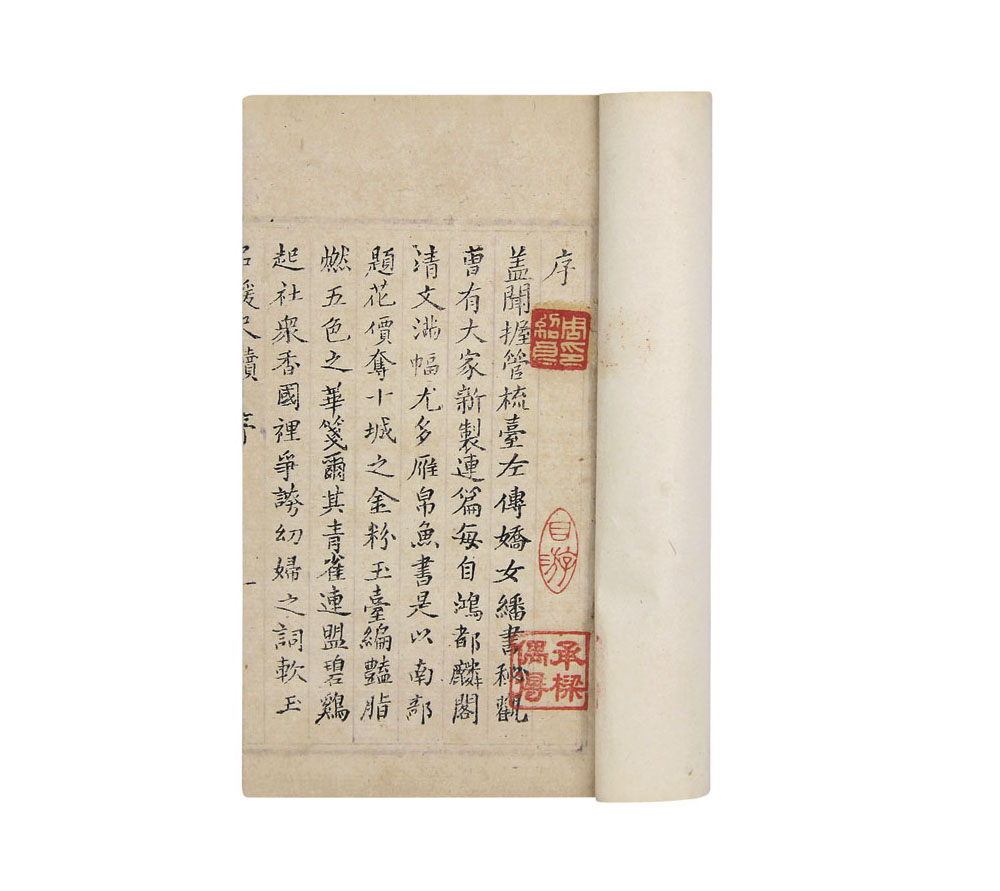 序
周印紹良
自游
承樑偶得
盖聞握管梳臺左傳嬌女繙書秘觀
曹有大家新製連篇每自鴻都麟閣
清文滿幅尤多雁帛魚書是以南部
題花價奪十城之金粉玉臺編豔脂
燃五色之華箋爾其青雀連盟碧鷄
起社衆香國裡爭誇幼婦之詞軟玉
名媛尺牘 序 一